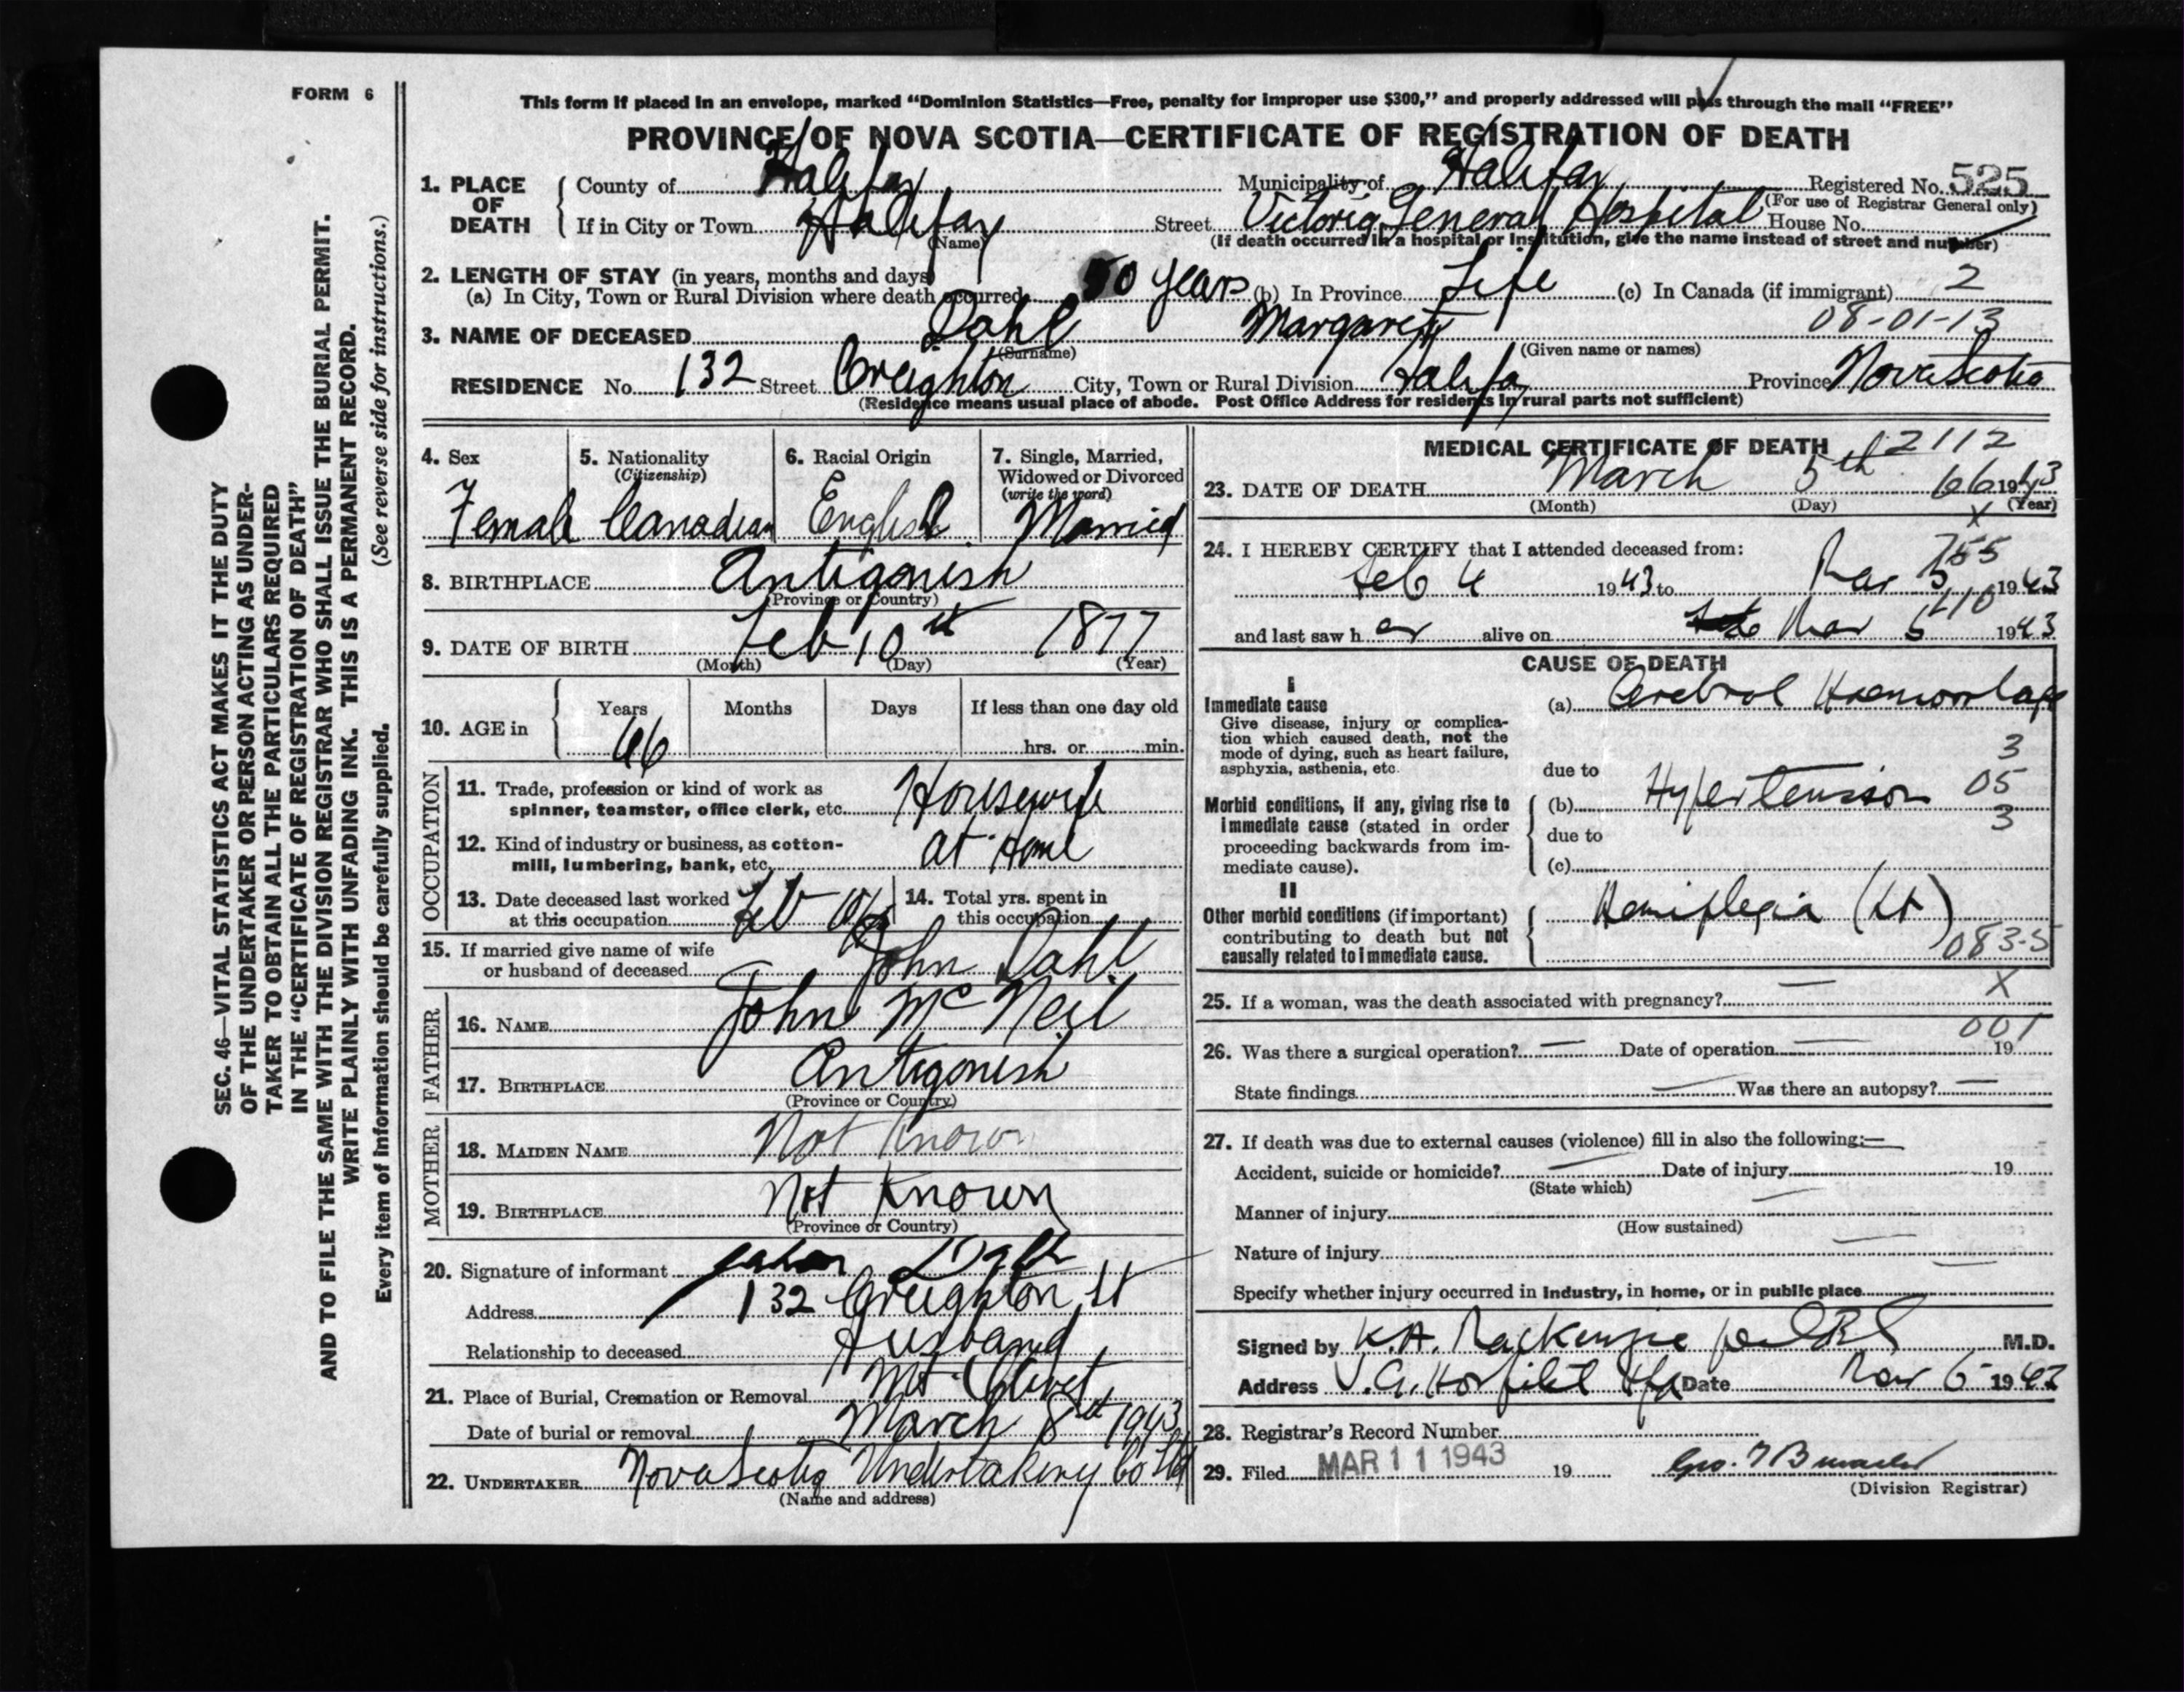 FORM 6
This form if placed in an envelope, marked “Dominion Statistics—Free, penalty for improper use $300,” and properly addressed will pass through the mail “FREE”
PROVINCE OF NOVA SCOTIA—CERTIFICATE OF REGISTRATION OF DEATH
1. PLACE OF DEATH { County of Halifax Municipality of Halifax Registered No. 525
(For use of Registrar General only)
If in City or Town Halifax Street Victoria General Hospital House No.
(Name) (If death occurred in a hospital or institution, give the name instead of street and number)
2. LENGTH OF STAY (in years, months and days)
(a) In City, Town or Rural Division where death occurred 50 years (b) In Province Life (c) In Canada (if immigrant) 2
08-01-13
3. NAME OF DECEASED Dahl Margaret
(Surname) (Given name or names)
RESIDENCE No. 132 Street Creighton City, Town or Rural Division Halifax Province Nova Scotia
(Residence means usual place of abode. Post Office Address for residents in rural parts not sufficient)
4. Sex 5. Nationality 6. Racial Origin 7. Single, Married,
(Citizenship) Widowed or Divorced
(write the word)
Female Canadian English Married
8. BIRTHPLACE Antigonish
(Province or Country)
9. DATE OF BIRTH Feb 10th 1877
(Month) (Day) (Year)
10. AGE in { Years Months Days If less than one day old
66 hrs. or min.
OCCUPATION
11. Trade, profession or kind of work as
spinner, teamster, office clerk, etc. Housewife
12. Kind of industry or business, as cotton-
mill, lumbering, bank, etc. at Home
13. Date deceased last worked
at this occupation Feb
14. Total yrs. spent in
this occupation
15. If married give name of wife
or husband of deceased John Dahl
FATHER
16. NAME John McNeil
17. BIRTHPLACE Antigonish
(Province or Country)
MOTHER
18. MAIDEN NAME Not Known
19. BIRTHPLACE Not Known
(Province or Country)
20. Signature of informant John Dahl
Address 132 Creighton St
Relationship to deceased Husband
21. Place of Burial, Cremation or Removal Mt. Olivet
Date of burial or removal March 8th 1943
22. UNDERTAKER Nova Scotia Undertaking Co Ltd
(Name and address)
MEDICAL CERTIFICATE OF DEATH
2112
23. DATE OF DEATH March 5th 66 1943
(Month) (Day) (Year)
X
24. I HEREBY CERTIFY that I attended deceased from:
755
Feb 4 1943 to Mar 5 1943
110
and last saw her alive on Mar 5 1943
CAUSE OF DEATH
I
Immediate cause
Give disease, injury or complica-
tion which caused death, not the
mode of dying, such as heart failure,
asphyxia, asthenia, etc.
(a) Cerebral Haemorrhage
3
due to
Morbid conditions, if any, giving rise to
immediate cause (stated in order
proceeding backwards from im-
mediate cause).
(b) Hypertension 05
due to 3
(c)
II
Other morbid conditions (if important)
contributing to death but not
causally related to immediate cause.
Hemiplegia (Lt)
083-5
25. If a woman, was the death associated with pregnancy? — X
001
26. Was there a surgical operation? — Date of operation — 19
State findings — Was there an autopsy? —
27. If death was due to external causes (violence) fill in also the following:—
Accident, suicide or homicide? — Date of injury 19
(State which)
Manner of injury —
(How sustained)
Nature of injury —
Specify whether injury occurred in industry, in home, or in public place —
Signed by K.A. MacKenzie M.D.
Address V.G. Hospital Hfx Date Mar 6 1943
28. Registrar's Record Number
29. Filed MAR 11 1943 19
(Division Registrar)
SEC. 46—VITAL STATISTICS ACT MAKES IT THE DUTY
OF THE UNDERTAKER OR PERSON ACTING AS UNDER-
TAKER TO OBTAIN ALL THE PARTICULARS REQUIRED
IN THE “CERTIFICATE OF REGISTRATION OF DEATH”
AND TO FILE THE SAME WITH THE DIVISION REGISTRAR WHO SHALL ISSUE THE BURIAL PERMIT.
WRITE PLAINLY WITH UNFADING INK. THIS IS A PERMANENT RECORD.
Every item of information should be carefully supplied. (See reverse side for instructions.)